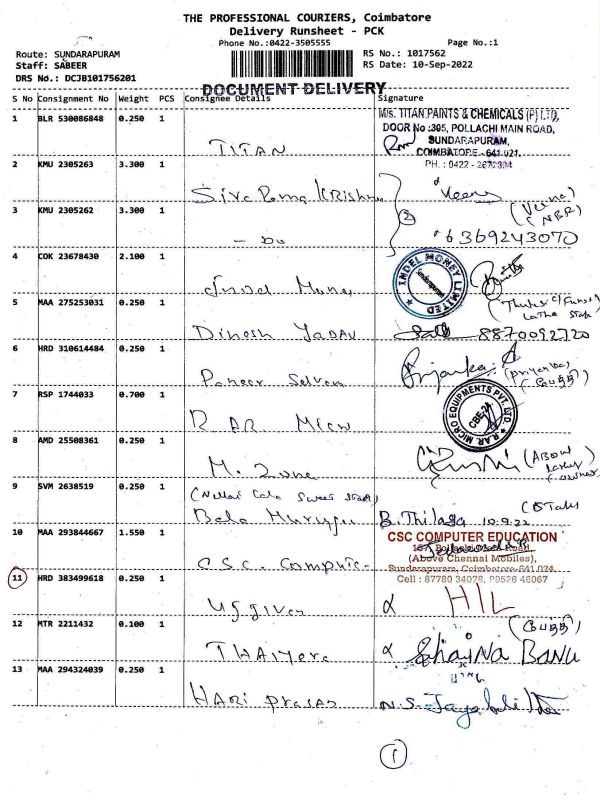 THE PROFESSIONAL COURIERS, Coimbatore
Delivery Runsheet - PCK
Phone No.:0422-3505555 Page No.:1
Route: SUNDARAPURAM RS No.: 1017562
Staff: SABEER RS Date: 10-Sep-2022
DRS No.: DCJB101756201
DOCUMENT DELIVERY
S No Consignment No Weight PCS Consignee Details Signature
1 BLR 530086848 0.250 1 TITAN
M/s. TITAN PAINTS & CHEMICALS (P) LTD,
DOOR No :305, POLLACHI MAIN ROAD,
SUNDARAPURAM,
COIMBATORE - 641 021.
PH. : 0422 -
2 KMU 2305263 3.300 1 Siva Rama Krishna
Veena
(Veena)
(NBR)
3 KMU 2305262 3.300 1 - Do
2
6369243070
4 COK 23678430 2.100 1 Indel Money
INDEL MONEY LIMITED
Sundarapuram
5 MAA 275253031 0.250 1 Dinesh YADAV
8870092720
6 HRD 310614484 0.250 1 Paneer Selvam
Priyanka
(Priyanka)
7 RSP 1744033 0.700 1 R AR Micro
R.AR. MICRO EQUIPMENTS PVT. LTD
CBE-24
8 AMD 25508361 0.250 1 M. Zone
9 SVM 2638519 0.250 1 Bala Murugan
B. Thilaga 10.9.22
10 MAA 293844667 1.550 1 C.S.C. Computer
CSC COMPUTER EDUCATION
157, Pollachi Main Road,
(Above Chennai Mobiles),
Sundarapuram, Coimbatore-641 024.
Cell : 87780 34078, 99526 46067
11 HRD 383499618 0.250 1 Ujjivan
HIL
12 MTR 2211432 0.100 1
Shajna Banu
13 MAA 294324039 0.250 1 Hari Prasad
N.S. Jaya
1